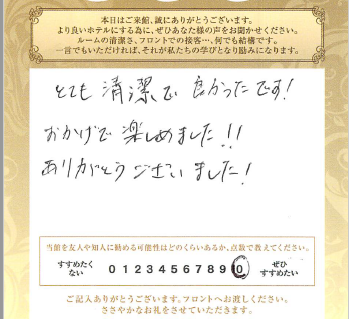 本日はご来館、誠にありがとうございます。
より良いホテルにする為に、ぜひあなた様の声をお聞かせください。
ルームの清潔さ、フロントでの接客…、何でも結構です。
一言でもいただければ、それが私たちの学びとなり励みになります。
とても清潔で良かったです!
おかげで楽しめました!!
ありがとうございました!
当館を友人や知人に勧める可能性はどのくらいあるか、点数で教えてください。
すすめたくない 0 1 2 3 4 5 6 7 8 9 10 ぜひすすめたい
ご記入ありがとうございます。フロントへお渡しください。
ささやかなお礼をさせていただきます。